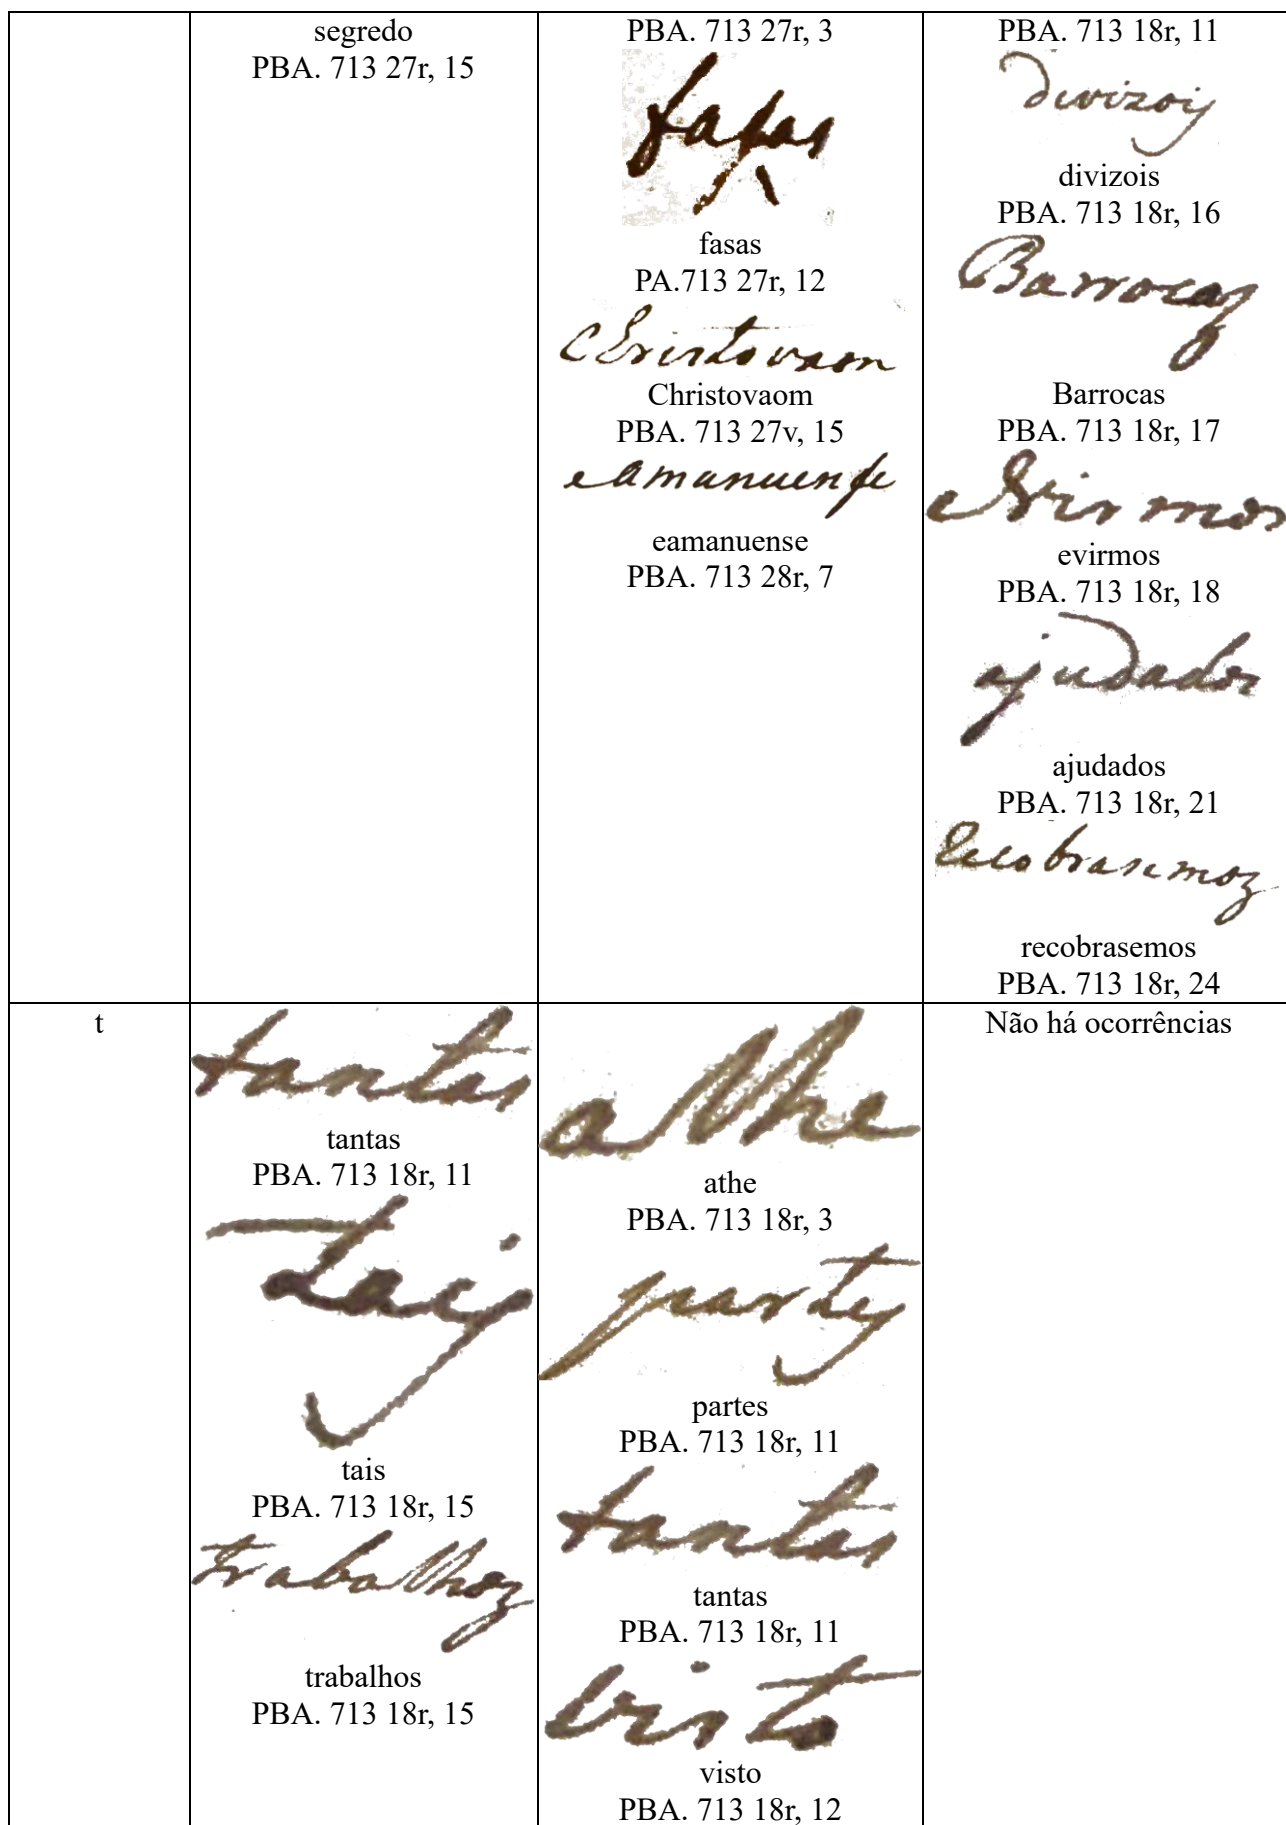 segredo
PBA. 713 27r, 15
PBA. 713 27r, 3
fasas
fasas
PA.713 27r, 12
Christovaom
Christovaom
PBA. 713 27v, 15
eamanuense
eamanuense
PBA. 713 28r, 7
PBA. 713 18r, 11
divizois
divizois
PBA. 713 18r, 16
Barrocas
Barrocas
PBA. 713 18r, 17
evirmos
evirmos
PBA. 713 18r, 18
ajudados
ajudados
PBA. 713 18r, 21
recobrasemos
recobrasemos
PBA. 713 18r, 24
t
tantas
tantas
PBA. 713 18r, 11
tais
tais
PBA. 713 18r, 15
trabalhos
trabalhos
PBA. 713 18r, 15
athe
athe
PBA. 713 18r, 3
partes
partes
PBA. 713 18r, 11
tantas
tantas
PBA. 713 18r, 11
visto
visto
PBA. 713 18r, 12
Não há ocorrências